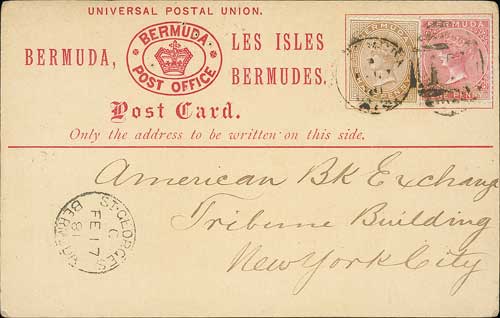 UNIVERSAL POSTAL UNION.
BERMUDA,
BERMUDA
POST OFFICE
LES ISLES
BERMUDES.
BERMUDA
Post Card.
Only the address to be written on this side.
American BK Exchange
Tribune Building
New York City
ST. GEORGES
C
FE 17
81
BERMUDA